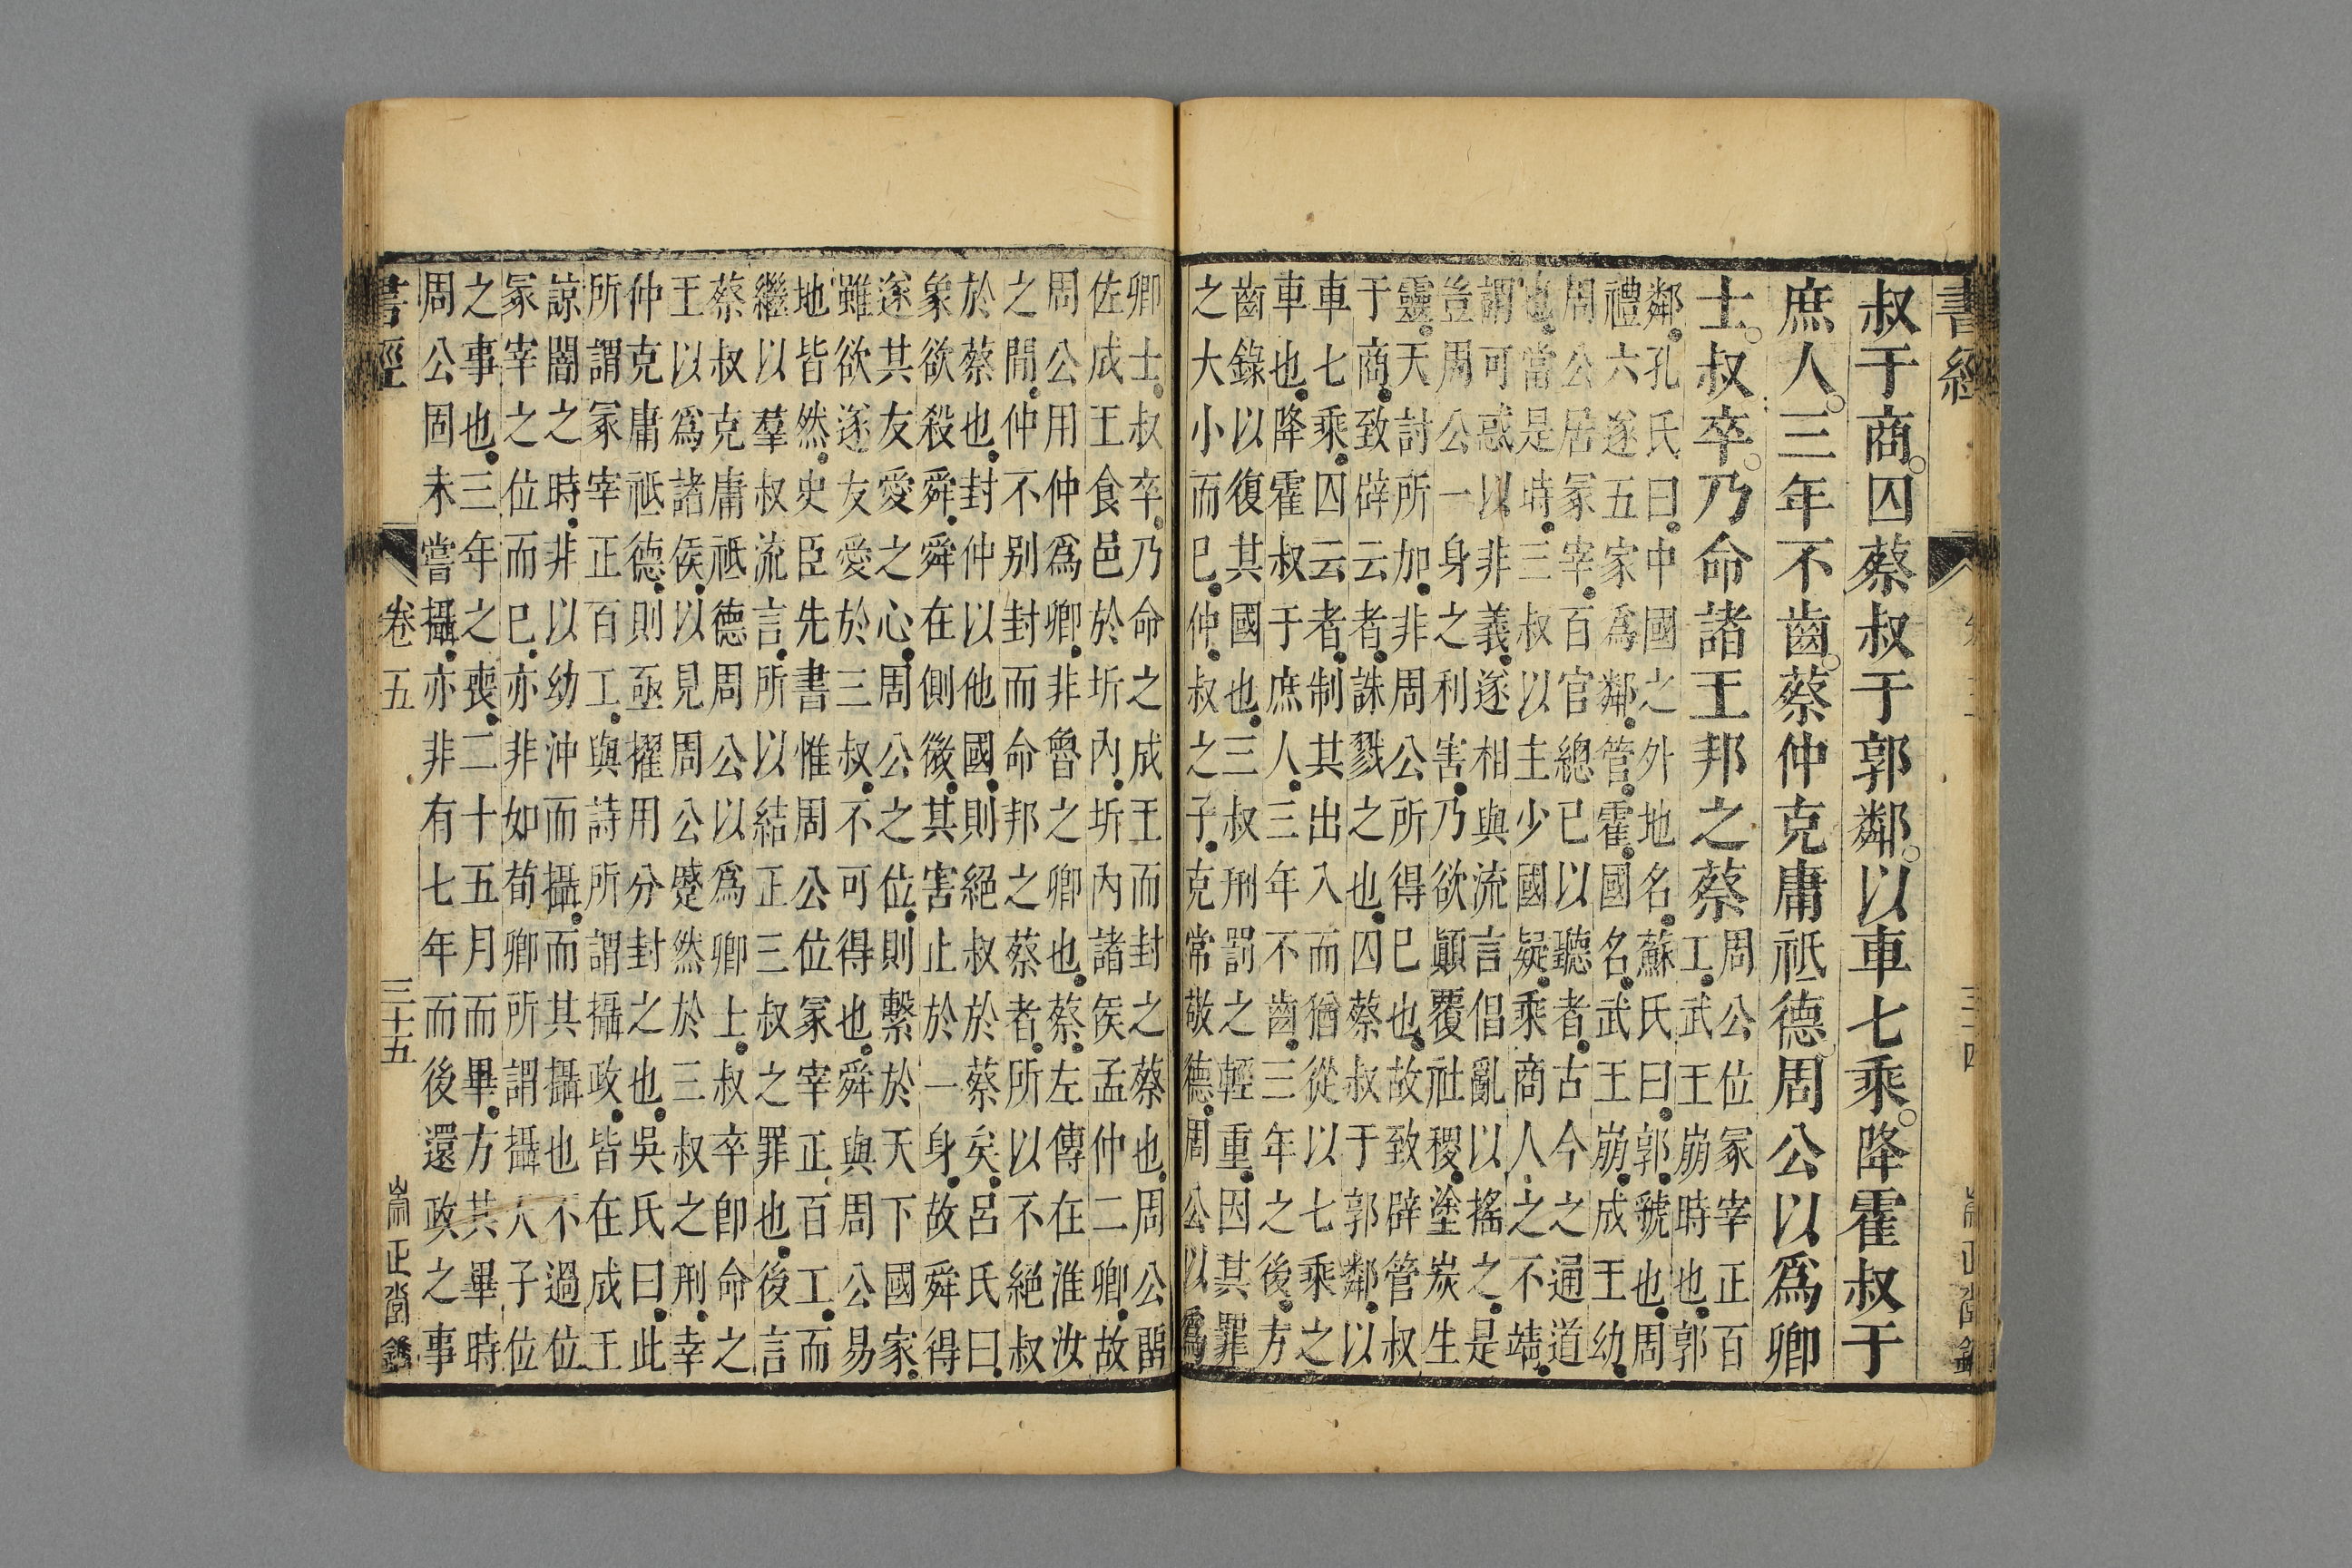 書經
叔于商囚蔡叔于郭鄰以車七乘降霍叔于
庶人三年不齒蔡仲克庸祗德周公以爲卿
士叔卒乃命諸王邦之蔡
周公位冢宰正百
工武王崩時也郭
鄰孔氏曰中國之外地名蘇氏曰郭虢也周
禮六遂五家爲鄰管霍國名武王崩成王幼
周公居冢宰百官總已以聽者古今之通道
也當是時三叔以主少國疑乘商人之不靖
謂可惑以非義遂相與流言倡亂以搖之是
豈周公一身之利害乃欲顚覆社稷塗炭生
靈天討所加非周公所得已也故致辟管叔
于商致辟云者誅戮之也囚蔡叔于郭鄰以
車七乘囚云者制其出入而猶從以七乘之
車也降霍叔于庶人三年不齒三年之後方
齒錄以復其國也三叔刑罰之輕重因其罪
之大小而已仲叔之子克常敬德周公以爲
卿士叔卒乃命之成王而封之蔡也周公留
佐成王食邑於圻內圻內諸侯孟仲二卿故
周公用仲爲卿非魯之卿也蔡左傳在淮汝
之間仲不别封而命邦之蔡者所以不絕叔
於蔡也封仲以他國則絕叔於蔡矣呂氏曰
象欲殺舜舜在側微其害止於一身故舜得
遂其友愛之心周公之位則繫於天下國家
雖欲遂友愛於三叔不可得也舜與周公易
地皆然史臣先書惟周公位冢宰正百工而
繼以羣叔流言所以結正三叔之罪也後言
蔡叔克庸祗德周公以爲卿上叔卒卽命之
王以爲諸侯以見周公蹙然於三叔之刑幸
仲克庸祗德則亟擢用分封之也吳氏曰此
所謂冢宰正百工與詩所謂攝政皆在成王
諒闇之時非以幼沖而攝而其攝也不過位
冢宰之位而已亦非如荀卿所謂攝天子位
之事也三年之喪二十五月而畢方其畢時
周公固未嘗攝亦非有七年而後還政之事
書經 卷五 三十五